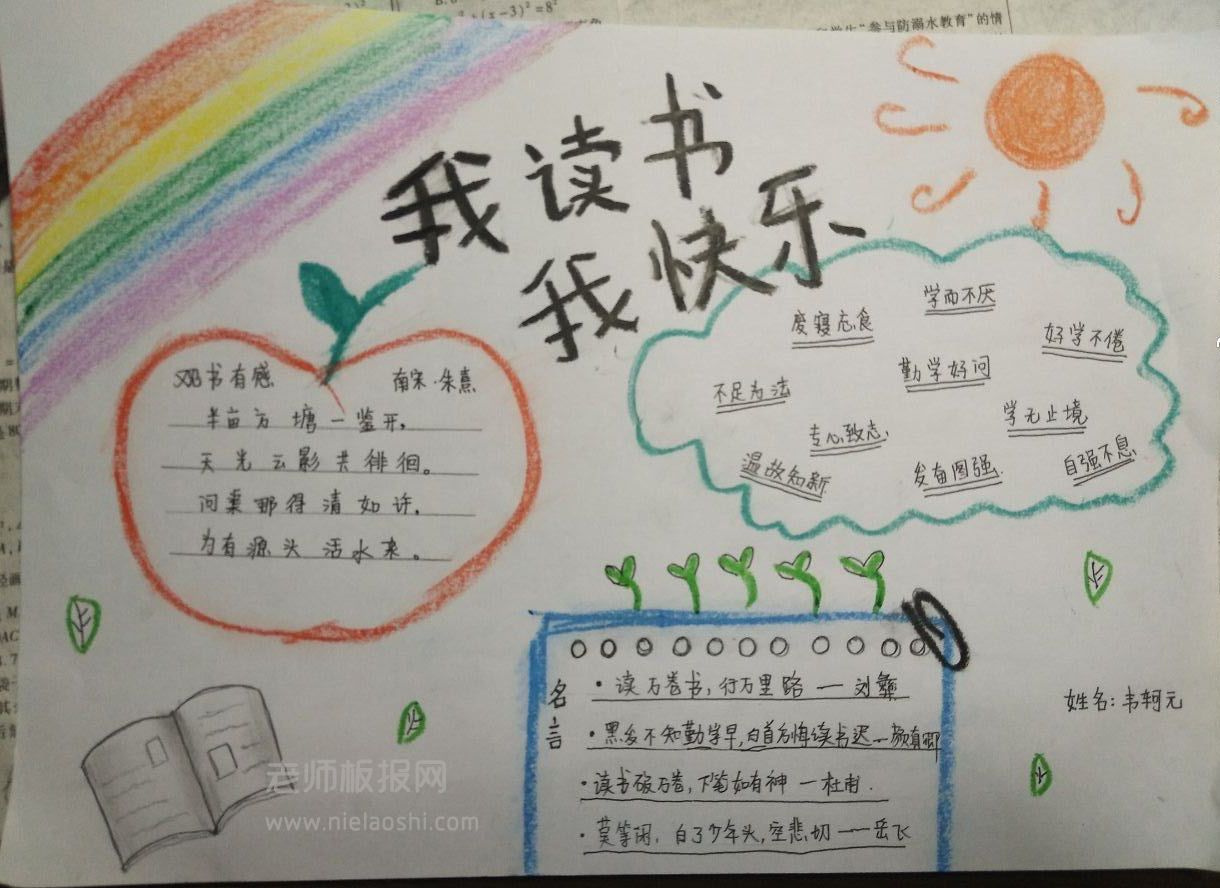 我读书
我快乐
观书有感 南宋·朱熹
半亩方塘一鉴开,
天光云影共徘徊。
问渠那得清如许,
为有源头活水来。
学而不厌
废寝忘食
好学不倦
勤学好问
不足为法
学无止境
专心致志
自强不息
温故知新
发奋图强
名言
·读万卷书,行万里路——刘彝
·黑发不知勤学早,白首方悔读书迟—颜真卿
·读书破万卷,下笔如有神—杜甫.
·莫等闲,白了少年头,空悲切——岳飞
姓名:韦轲元
老师板报网
www.nielaoshi.com
(x-3)²=8²
学生“参与防溺水教育”的情